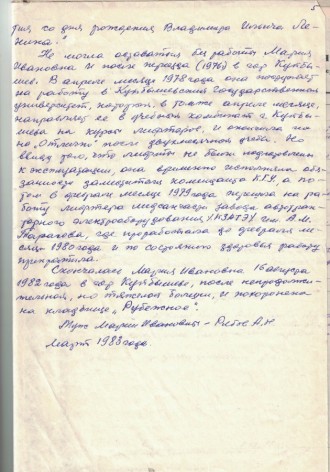 5
рия со дня рождения Владимира Ильича Ле-
нина."
Не могла оставаться без работы Мария
Ивановна и после переезда (1976) в гор Куйбы-
шев. В апреле месяце 1978 года она поступает
на работу в Куйбышевский Государственный
университет, который, в том же апреле месяце,
направляет её в учебный комбинат г. Куйбы-
шева на курсы лифтёров, и окончила на
но „Отлично" после двухмесячной учёбы. Но
ввиду того, что лифты не были подготовлены
к эксплуатации, она временно исполняла обя-
занности заместителя коменданта КГУ, а по-
том в феврале месяце 1979 года перешла на ра-
боту лифтёра медсанчасти завода автотрак-
торного электрооборудования /КЗАТЭ/ им. А.М.
Тарасова, где проработала до февраля ме-
сяца 1980 года и по состоянию здоровья работу
прекратила.
Скончалась Мария Ивановна 16 августа
1982 года в гор Куйбышеве, после непродолжи-
тельной, но тяжёлой болезни, и похоронена
на кладбище „Рубежное".
Муж Марии Ивановны - А.Н
Март 1988 года.